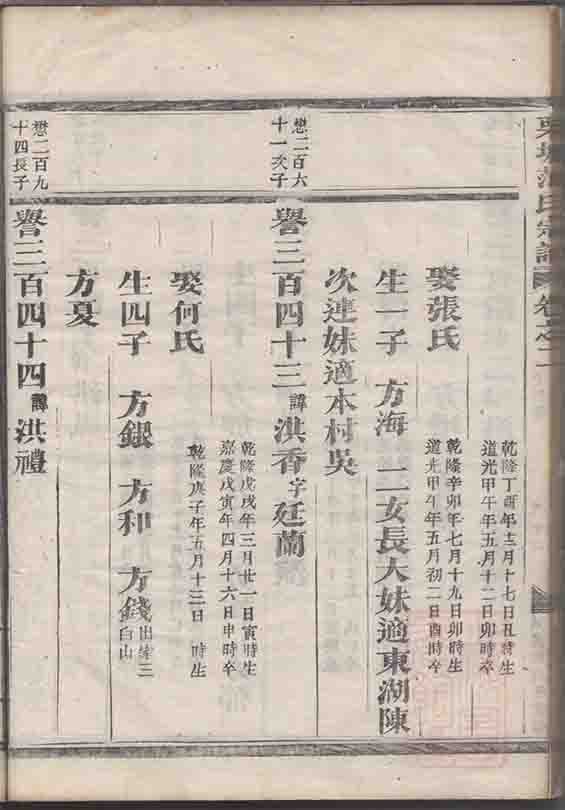 氏宗譜 卷之二
乾隆丁酉年十二月十七日丑時生
道光甲午年五月十二日卯時卒
娶張氏
乾隆辛卯年七月十九日卯時生
道光甲午年五月初二日酉時卒
生一子 方海 二女長大妹適東湖陳
次連妹適本村吳
懋二百六
十一次子
譽三百四十三諱洪香字廷蘭
乾隆戊戌年三月廿一日寅時生
嘉慶戊寅年四月十六日申時卒
娶何氏
乾隆庚子年五月十三日 時生
生四子 方銀 方和 方錢出繼三白山
方夏
懋二百九
十四長子
譽三百四十四諱洪禮